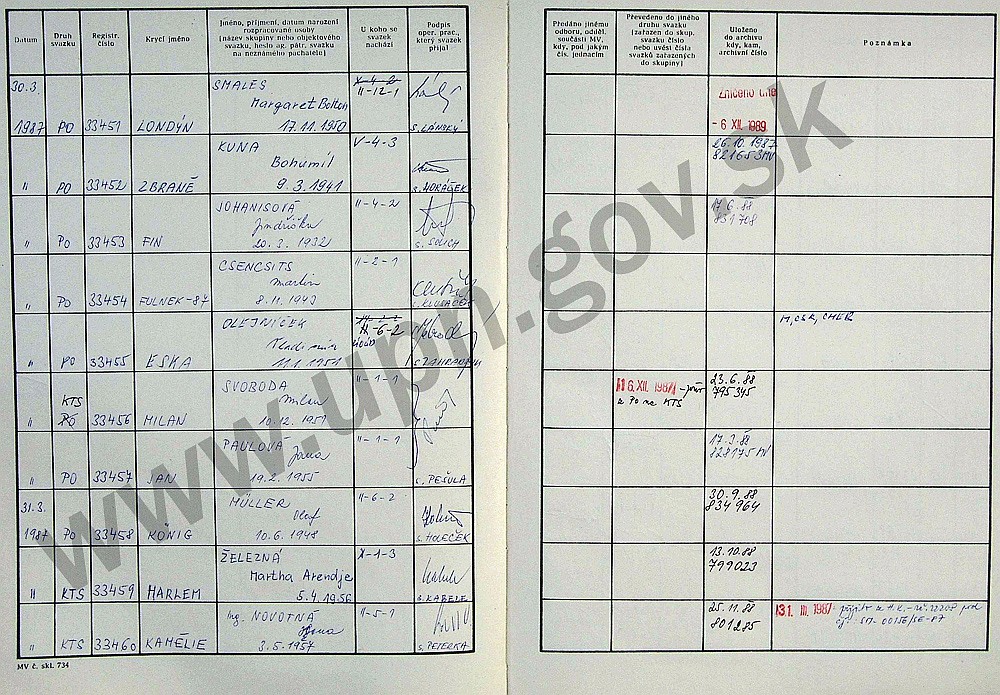 Datum
Druh
svazku
Registr.
číslo
Krycí jméno
Jméno, příjmení, datum narození
rozpracované osoby
(název skupiny nebo objektového
svazku, heslo ag. pátr. svazku
na neznámého pachatele)
U koho se
svazek
nachází
Podpis
oper. prac.,
který svazek
přijal
Předáno jinému
odboru, odděl.
součásti MV,
kdy, pod jakým
čís. jednacím
Převedeno do jiného
druhu svazku
(zařazen do skup.
svazku číslo
nebo uvésti čísla
svazků zařazených
do skupiny)
Uloženo
do archivu
kdy, kam,
archivní číslo
Poznámka
30.3.
1987 PO 33451 LONDÝN
SMALES
Margaret Bolton
17.11.1950
II-12-1
s. LÁNSKÝ
Zničeno dne
- 6 XII. 1989
" PO 33452 ZBRANĚ
KUNA
Bohumil
9. 3. 1941
V-4-3
s. HORÁČEK
26.10.1987
821653MV
" PO 33453 FIN
JOHANISOVÁ
Jindřiška
20. 3. 1932
II-4-2
s. SOLICH
17.6.88
831708
" PO 33454 FULNEK-87
CSENCSITS
Martin
8. 11. 1943
II-2-1
" PO 33455 ESKA
OLEJNÍČEK
Vladimír
11.1. 1951
II-6-2
KTS
" PO 33456 MILAN
SVOBODA
Milan
10.12. 1951
II-1-1
16. XII. 1987
z Po na KTS
23.6.88
795345
" PO 33457 JAN
PAULOVÁ
Jana
19.2. 1955
II-1-1
s. PEŠULA
17.3.88
828175 MV
31.3.
1987 PO 33458 KÖNIG
MÜLLER
Olaf
10. 6. 1948
II-6-2
s. HOLEČEK
30.9.88
834964
" KTS 33459 HARLEM
ŽELEZNÁ
Martha Arendje
5.4.1956
X-1-3
s. KABELE
13.10.88
799023
" KTS 33460 KAMÉLIE
Ing. NOVOTNÁ
Hana
3.5.1957
II-5-1
s. PETERKA
25.11.88
801285
31. III. 1987
MV č. skl. 734
www.upn.gov.sk